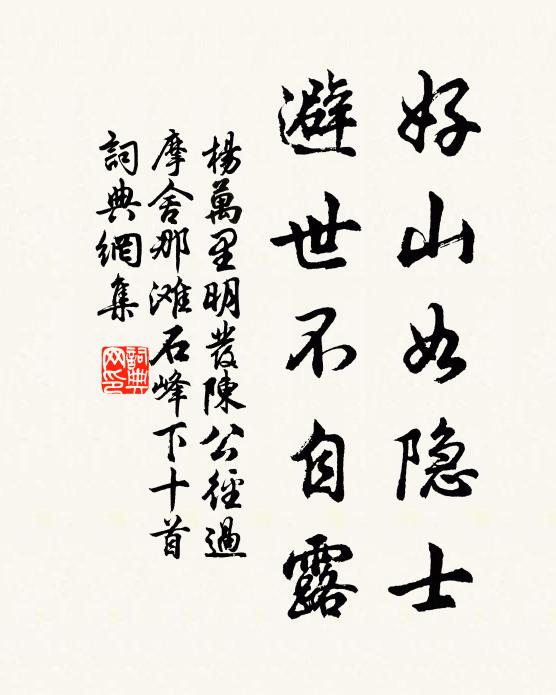 好山如隐士
避世不自露
楊萬里明發陳公徑過
摩舍那滩石峰下十首
詞典網集
詞典
网印